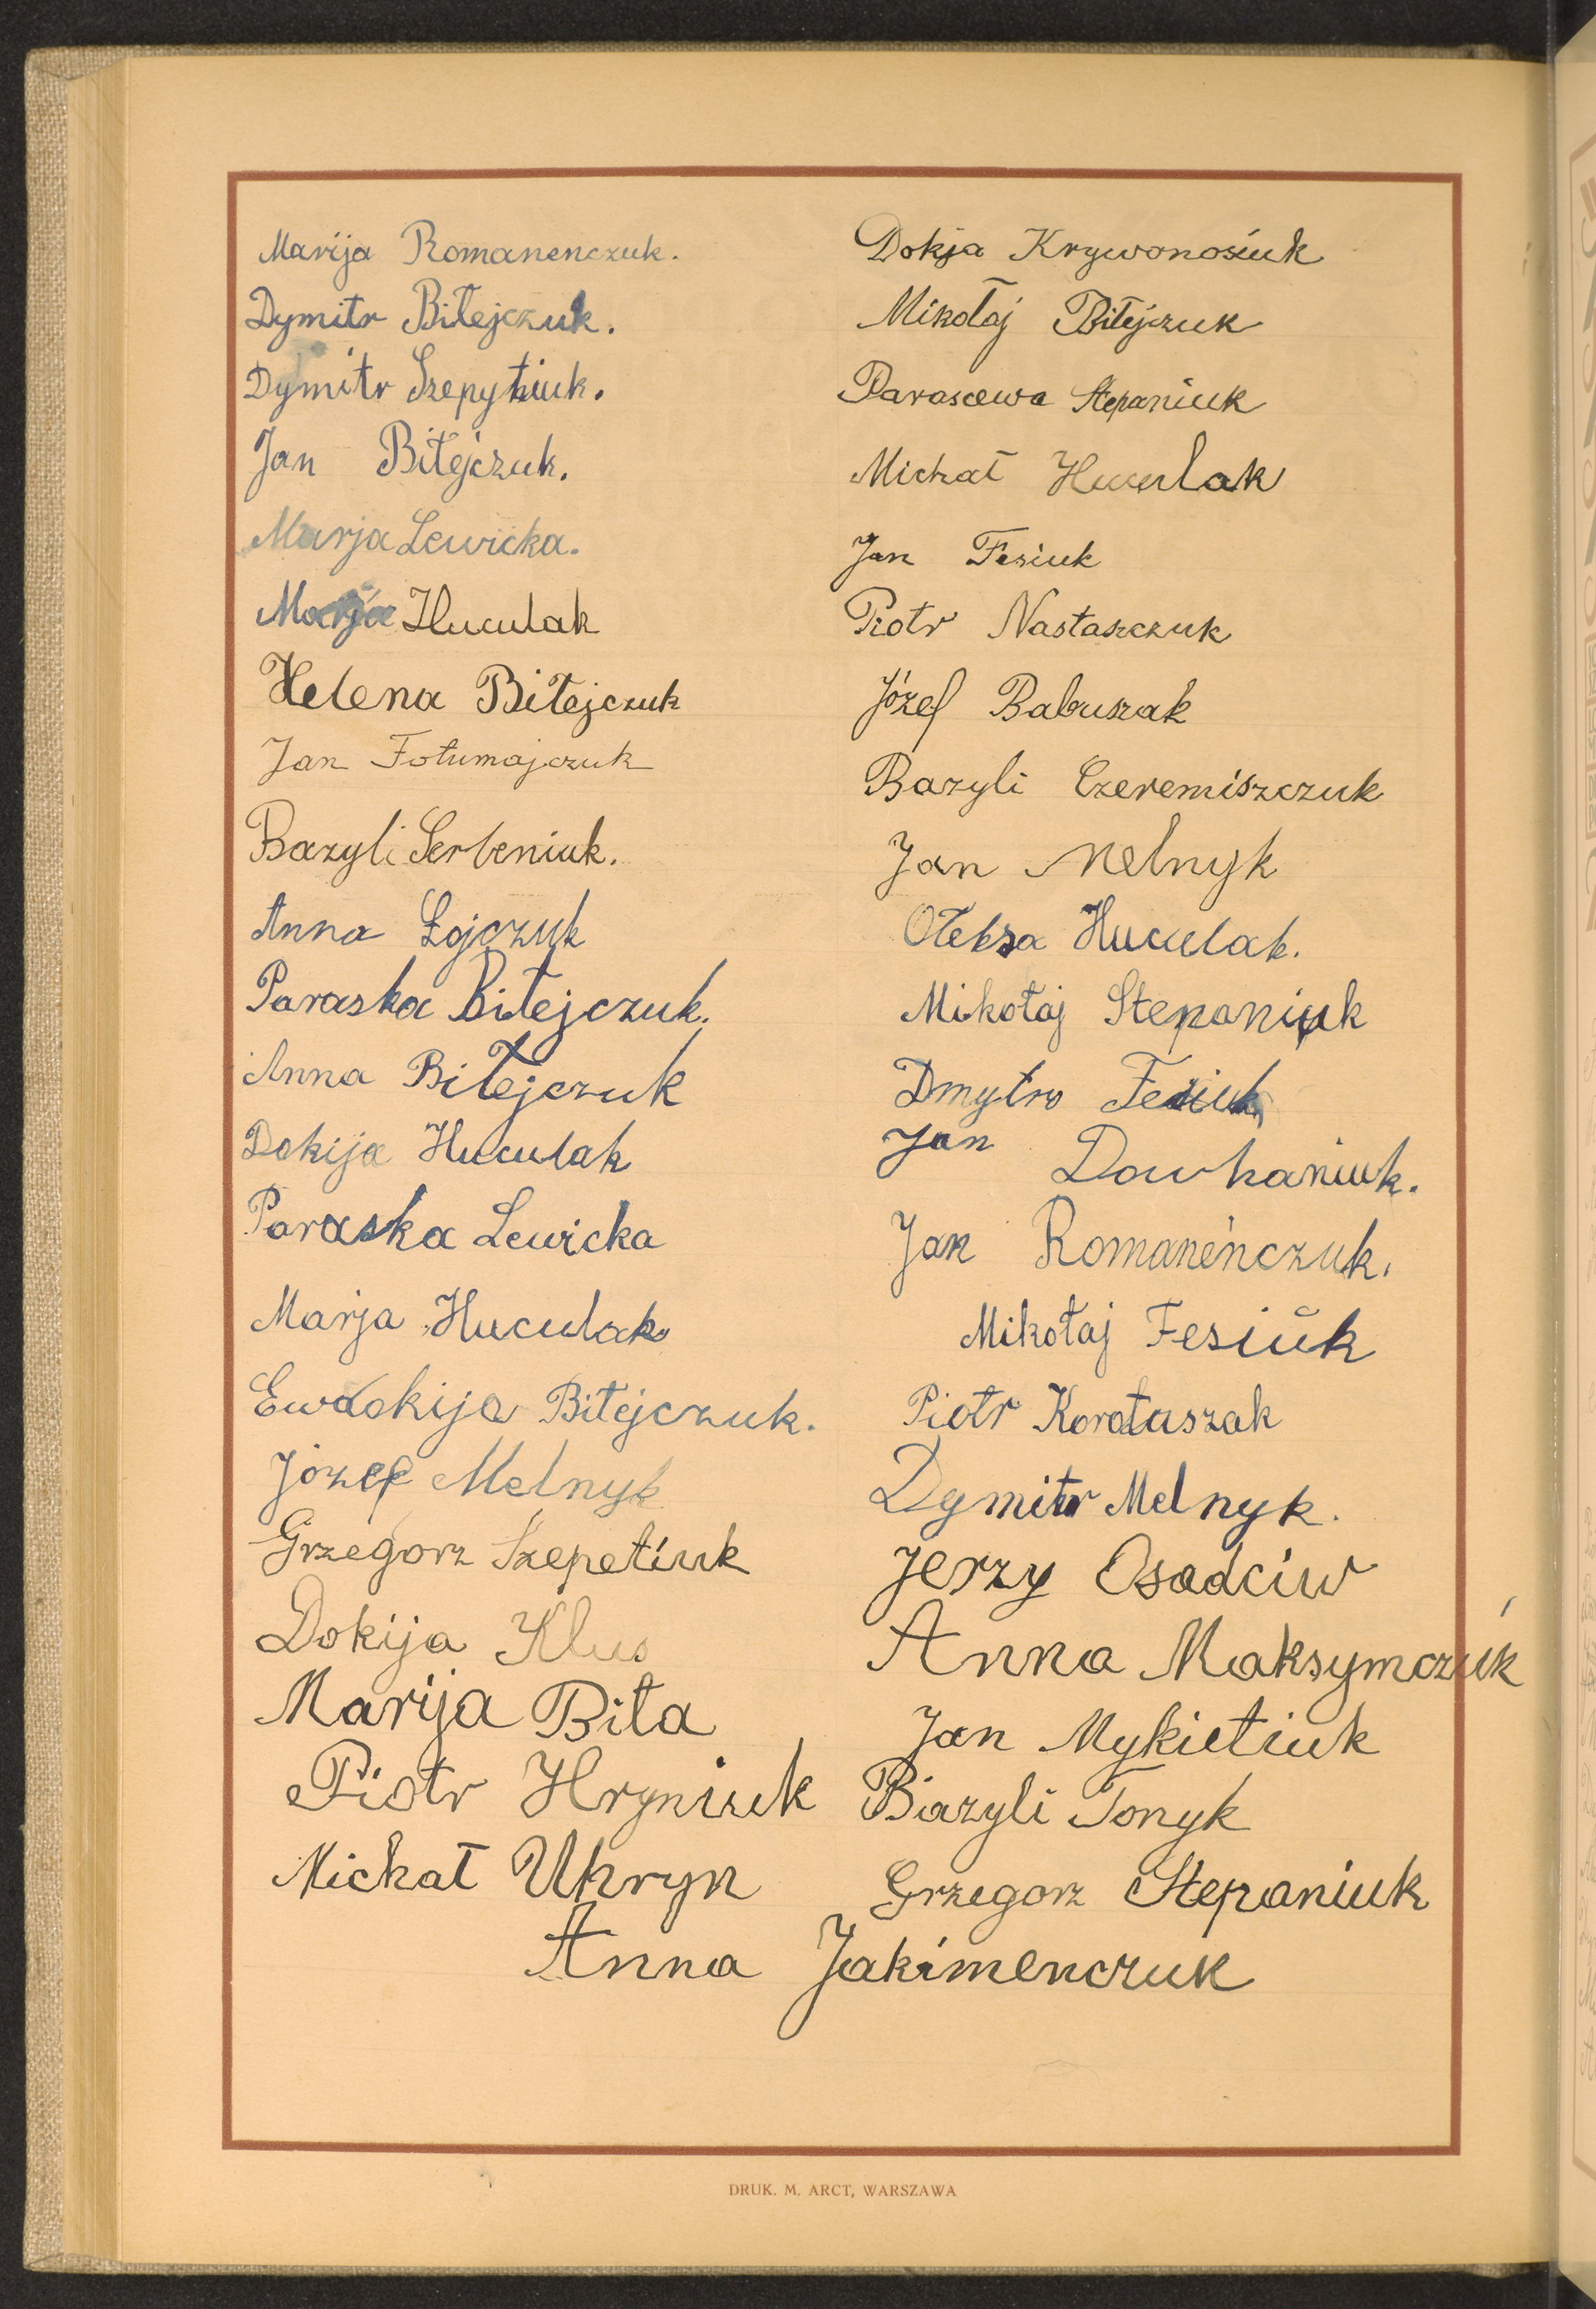 Marija Romanenczuk.
Dymitr Biłejczuk.
Dymitr Szepytiuk.
Jan Biłejczuk.
Marja Lewicka.
Marja Huculak
Helena Biłejczuk
Jan Fotumajczuk
Bazyli Serbeniuk.
Anna Łojczuk
Paraska Biłejczuk.
Anna Biłejczuk
Dokija Huculak
Paraska Lewicka
Marja Huculak
Ewdokija Biłejczuk.
Józef Melnyk
Grzegorz Szepetiuk
Dokija Klus
Marija Biła
Piotr Hryniuk
Michał Uhryn
Dokja Krywonosiuk
Mikołaj Biłejczuk
Parascewa Stepaniuk
Michał Huculak
Jan Fesiuk
Piotr Nastaszczuk
Józef Babuszak
Bazyli Czeremiszczuk
Jan Melnyk
Ołeksa Huculak.
Mikołaj Stepaniuk
Dmytro Fesiuk
Jan Dowhaniuk.
Jan Romaneńczuk.
Mikołaj Fesiuk
Piotr Korołaszak
Dymitr Melnyk.
Jerzy Osadciw
Anna Maksymczuk
Jan Mykietiuk
Bazyli Tonyk
Grzegorz Stepaniuk
Anna Jakimenczuk
DRUK. M. ARCT, WARSZAWA